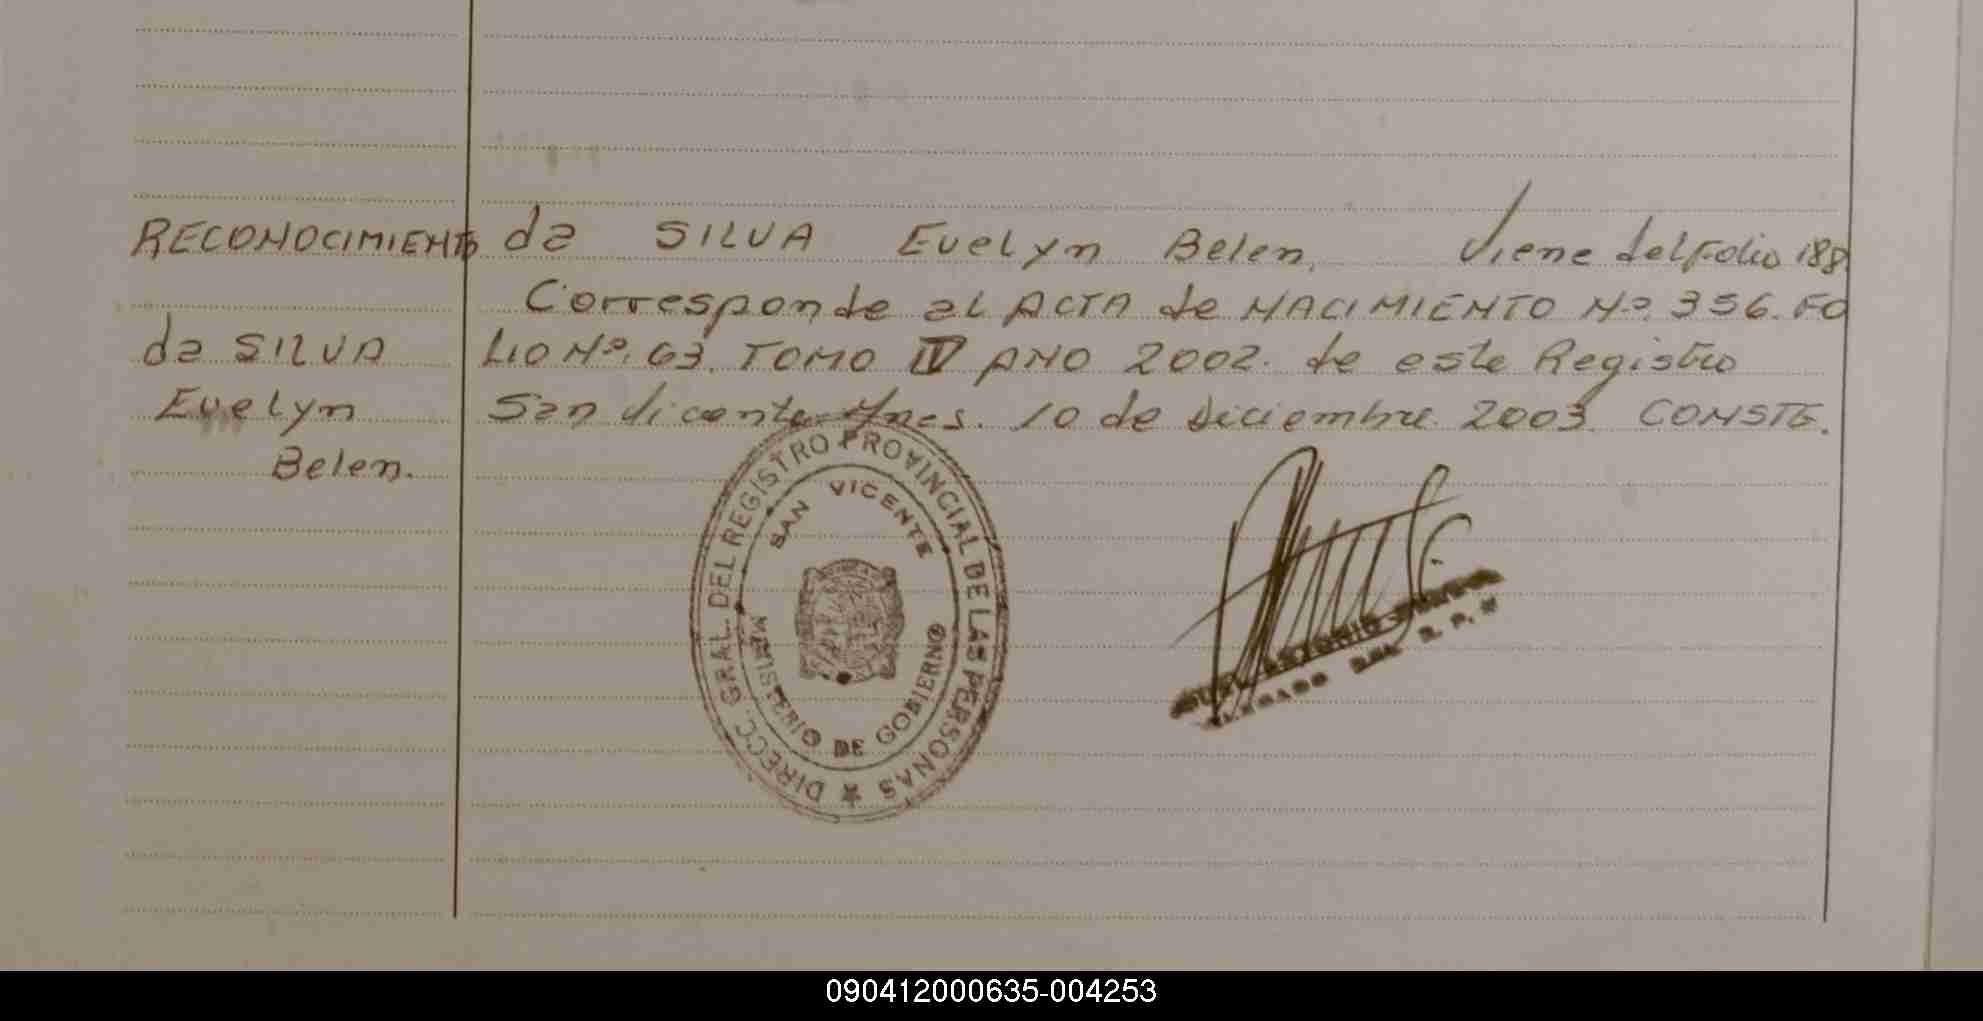 RECONOCIMIENTO
da SILVA
Evelyn
Belen.
da SILVA Evelyn Belen, Viene del Folio 188
Corresponde al ACTA de NACIMIENTO Nº. 356. FO
LIO Nº. 63. TOMO IV AÑO 2002. de este Registro
San Vicente Mnes. 10 de Diciembre 2003. CONSTE.
DIRECC. GRAL. DEL REGISTRO PROVINCIAL DE LAS PERSONAS
SAN VICENTE
MINISTERIO DE GOBIERNO
ANTONIO
090412000635-004253